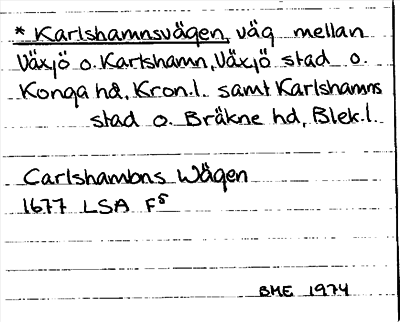 * Karlshamnsvägen, väg mellan
Växjö o. Karlshamn, Växjö stad o.
Konga hd, Kron.l. samt Karlshamns
stad o. Bräkne hd, Blek.l.
Carlshambns Wägen
1677 LSA F⁵
BME 1974